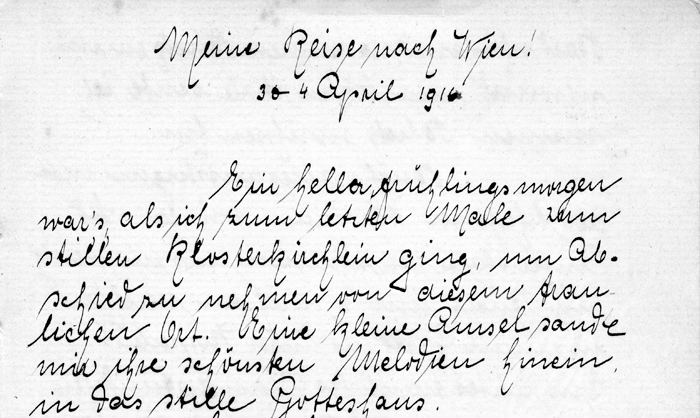 Meine Reise nach Wien!
30 4 April 1916
Ein heller Frühlingsmorgen
war's, als ich zum letzten Male zum
stillen Klosterkirchlein ging, um Ab-
schied zu nehmen von diesem trau-
lichen Ort. Eine kleine Amsel sandte
mir ihre schönsten Melodien hinein,
in das stille Gotteshaus.